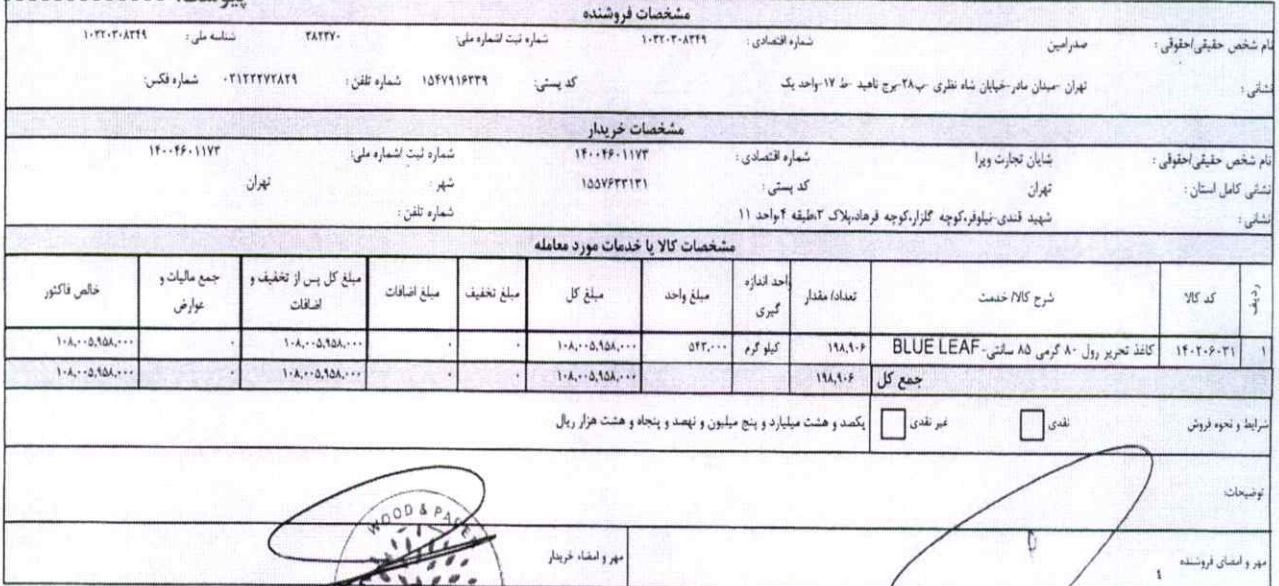 پیوست:
مشخصات فروشنده
نام شخص حقیقی/حقوقی : صدرامین شماره اقتصادی : ۱۰۳۲۰۳۰۸۳۴۹ شماره ثبت /شماره ملی: ۳۸۲۳۷۰ شناسه ملی : ۱۰۳۲۰۳۰۸۳۴۹
نشانی : تهران -میدان مادر-خیابان شاه نظری -پ۲۸-برج ناهید -ط ۱۷-واحد یک کد پستی: ۱۵۴۷۹۱۶۳۳۹ شماره تلفن : ۰۲۱۲۲۲۷۲۸۲۹ شماره فکس:
مشخصات خریدار
نام شخص حقیقی/حقوقی : شایان تجارت ویرا شماره اقتصادی : ۱۴۰۰۴۶۰۱۱۷۳ شماره ثبت /شماره ملی: ۱۴۰۰۴۶۰۱۱۷۳
نشانی کامل استان : تهران کد پستی : ۱۵۵۷۶۳۳۱۳۱ شهر : تهران
نشانی : شهید قندی-نیلوفر،کوچه گلزار،کوچه فرهاد،پلاک ۲،طبقه ۴،واحد ۱۱ شماره تلفن :
مشخصات کالا یا خدمات مورد معامله
ردیف کد کالا شرح کالا/ خدمت تعداد/ مقدار واحد اندازه گیری مبلغ واحد مبلغ کل مبلغ تخفیف مبلغ اضافات مبلغ کل پس از تخفیف و اضافات جمع مالیات و عوارض خالص فاکتور
۱ ۱۴۰۲۰۶۰۳۱ کاغذ تحریر رول ۸۰ گرمی ۸۵ سانتی- BLUE LEAF ۱۹۸,۹۰۶ کیلو گرم ۵۴۳,۰۰۰ ۱۰۸,۰۰۵,۹۵۸,۰۰۰ ۰ ۰ ۱۰۸,۰۰۵,۹۵۸,۰۰۰ ۰ ۱۰۸,۰۰۵,۹۵۸,۰۰۰
جمع کل ۱۹۸,۹۰۶ ۱۰۸,۰۰۵,۹۵۸,۰۰۰ ۰ ۰ ۱۰۸,۰۰۵,۹۵۸,۰۰۰ ۰ ۱۰۸,۰۰۵,۹۵۸,۰۰۰
شرایط و نحوه فروش نقدی غیر نقدی یکصد و هشت میلیارد و پنج میلیون و نهصد و پنجاه و هشت هزار ریال
توضیحات:
مهر و امضای فروشنده مهر و امضاء خریدار
WOOD &